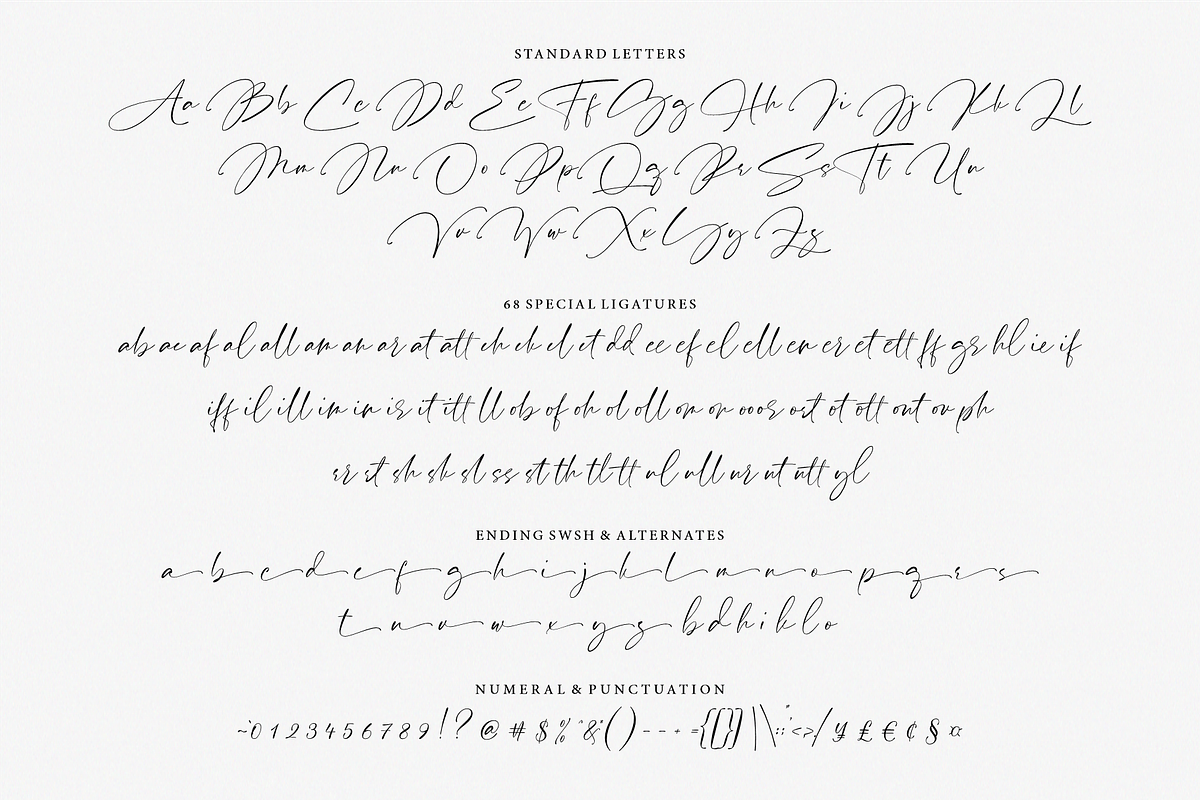 STANDARD LETTERS
Aa Bb Cc Dd Ee Ff Gg Hh Ii Jj Kk Ll
Mm Nn Oo Pp Qq Rr Ss Tt Uu
Vv Ww Xx Yy Zz
68 SPECIAL LIGATURES
ab ac af al all am an ar at att ch ck cl ct dd ee ef el ell en er et ett ff gr hl ie if
iff il ill im in ir it itt ll ob of oh ol oll om on oo or ot ott out ov ph
rr rt sh sk sl ss st th tl tt ul ull ur ut utt yl
ENDING SWSH & ALTERNATES
a b c d e f g h i j k l m n o p q r s
t u v w x y z b d h i k l o
NUMERAL & PUNCTUATION
~ 0 1 2 3 4 5 6 7 8 9 ! ? @ # $ % ^ & * ( ) - – + = { [ ] } | \ : ; " ' < > / ¥ £ € ¢ § ¤